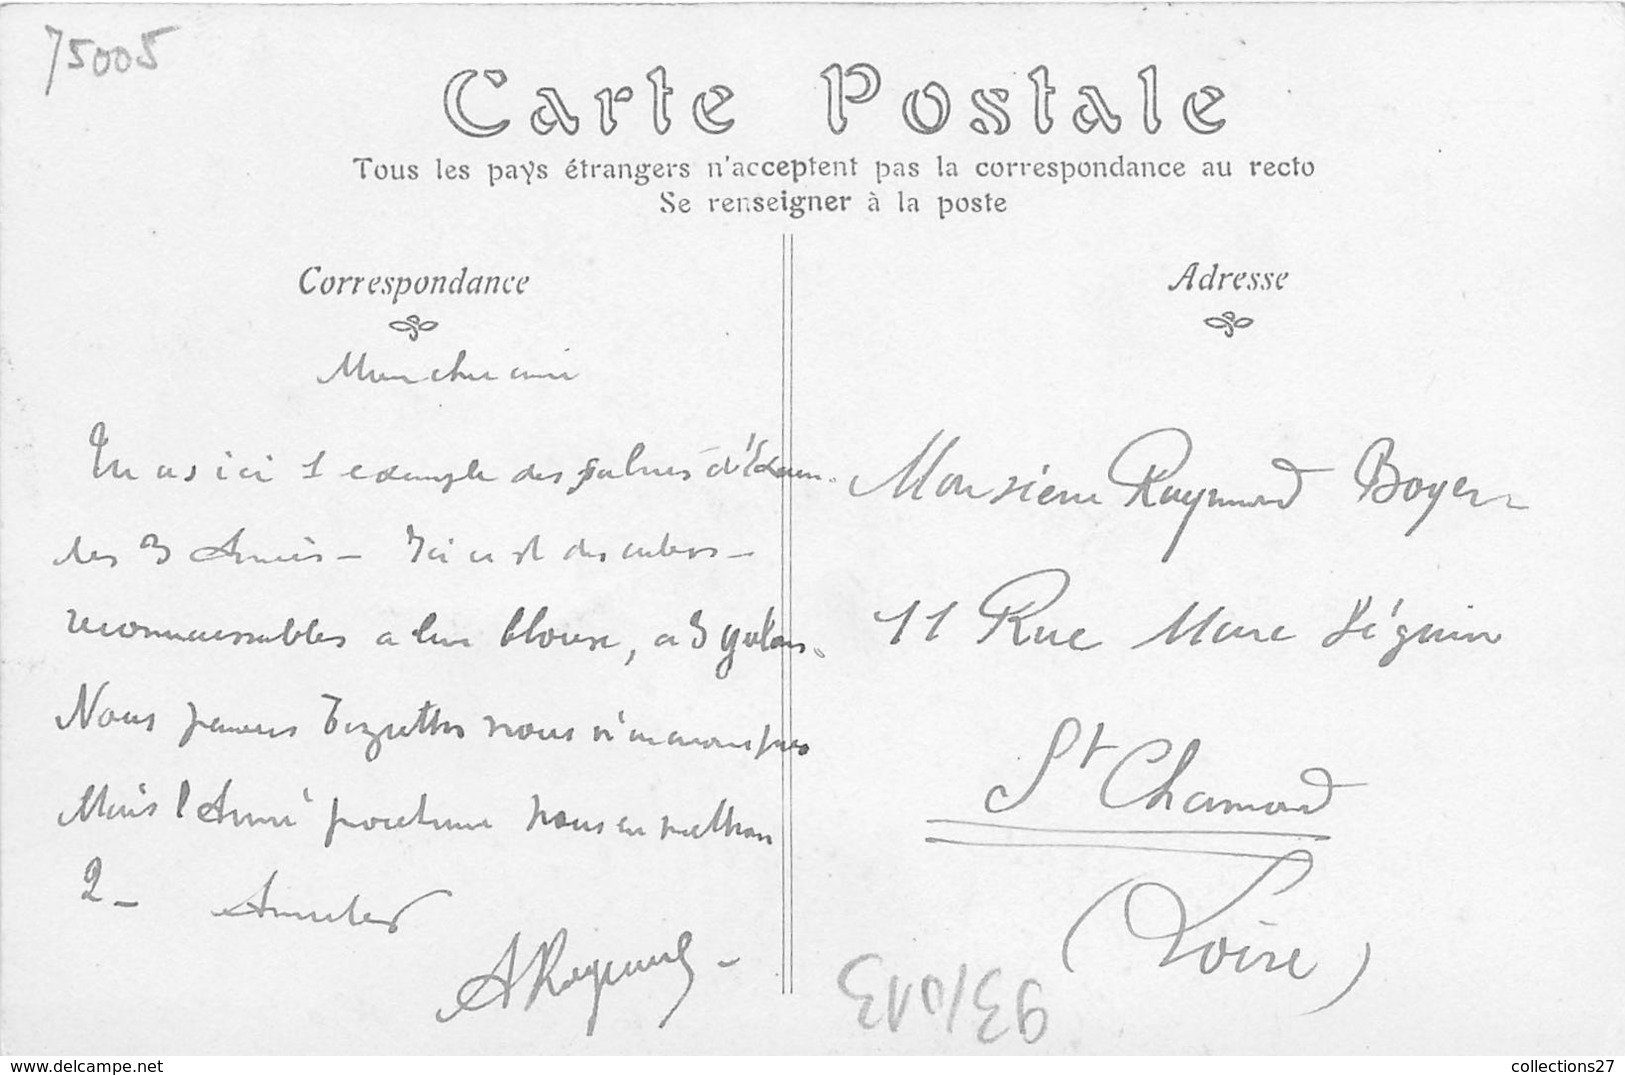 75005
Carte Postale
Tous les pays étrangers n'acceptent pas la correspondance au recto
Se renseigner à la poste
Correspondance
Mon cher ami
Tu as ici 1 exemple des
des 3 Années - Ici c'est des cubes -
reconnaissables a leur blouse, a 3 galons.
Nous pauvres bizuths nous n'en avons pas
Mais l'Année prochaine nous en mettrons
2 - Amitiés
Adresse
Monsieur Raymond Boyer
11 Rue Marc Séguin
St Chamond
(Loire)
93/013
collections27